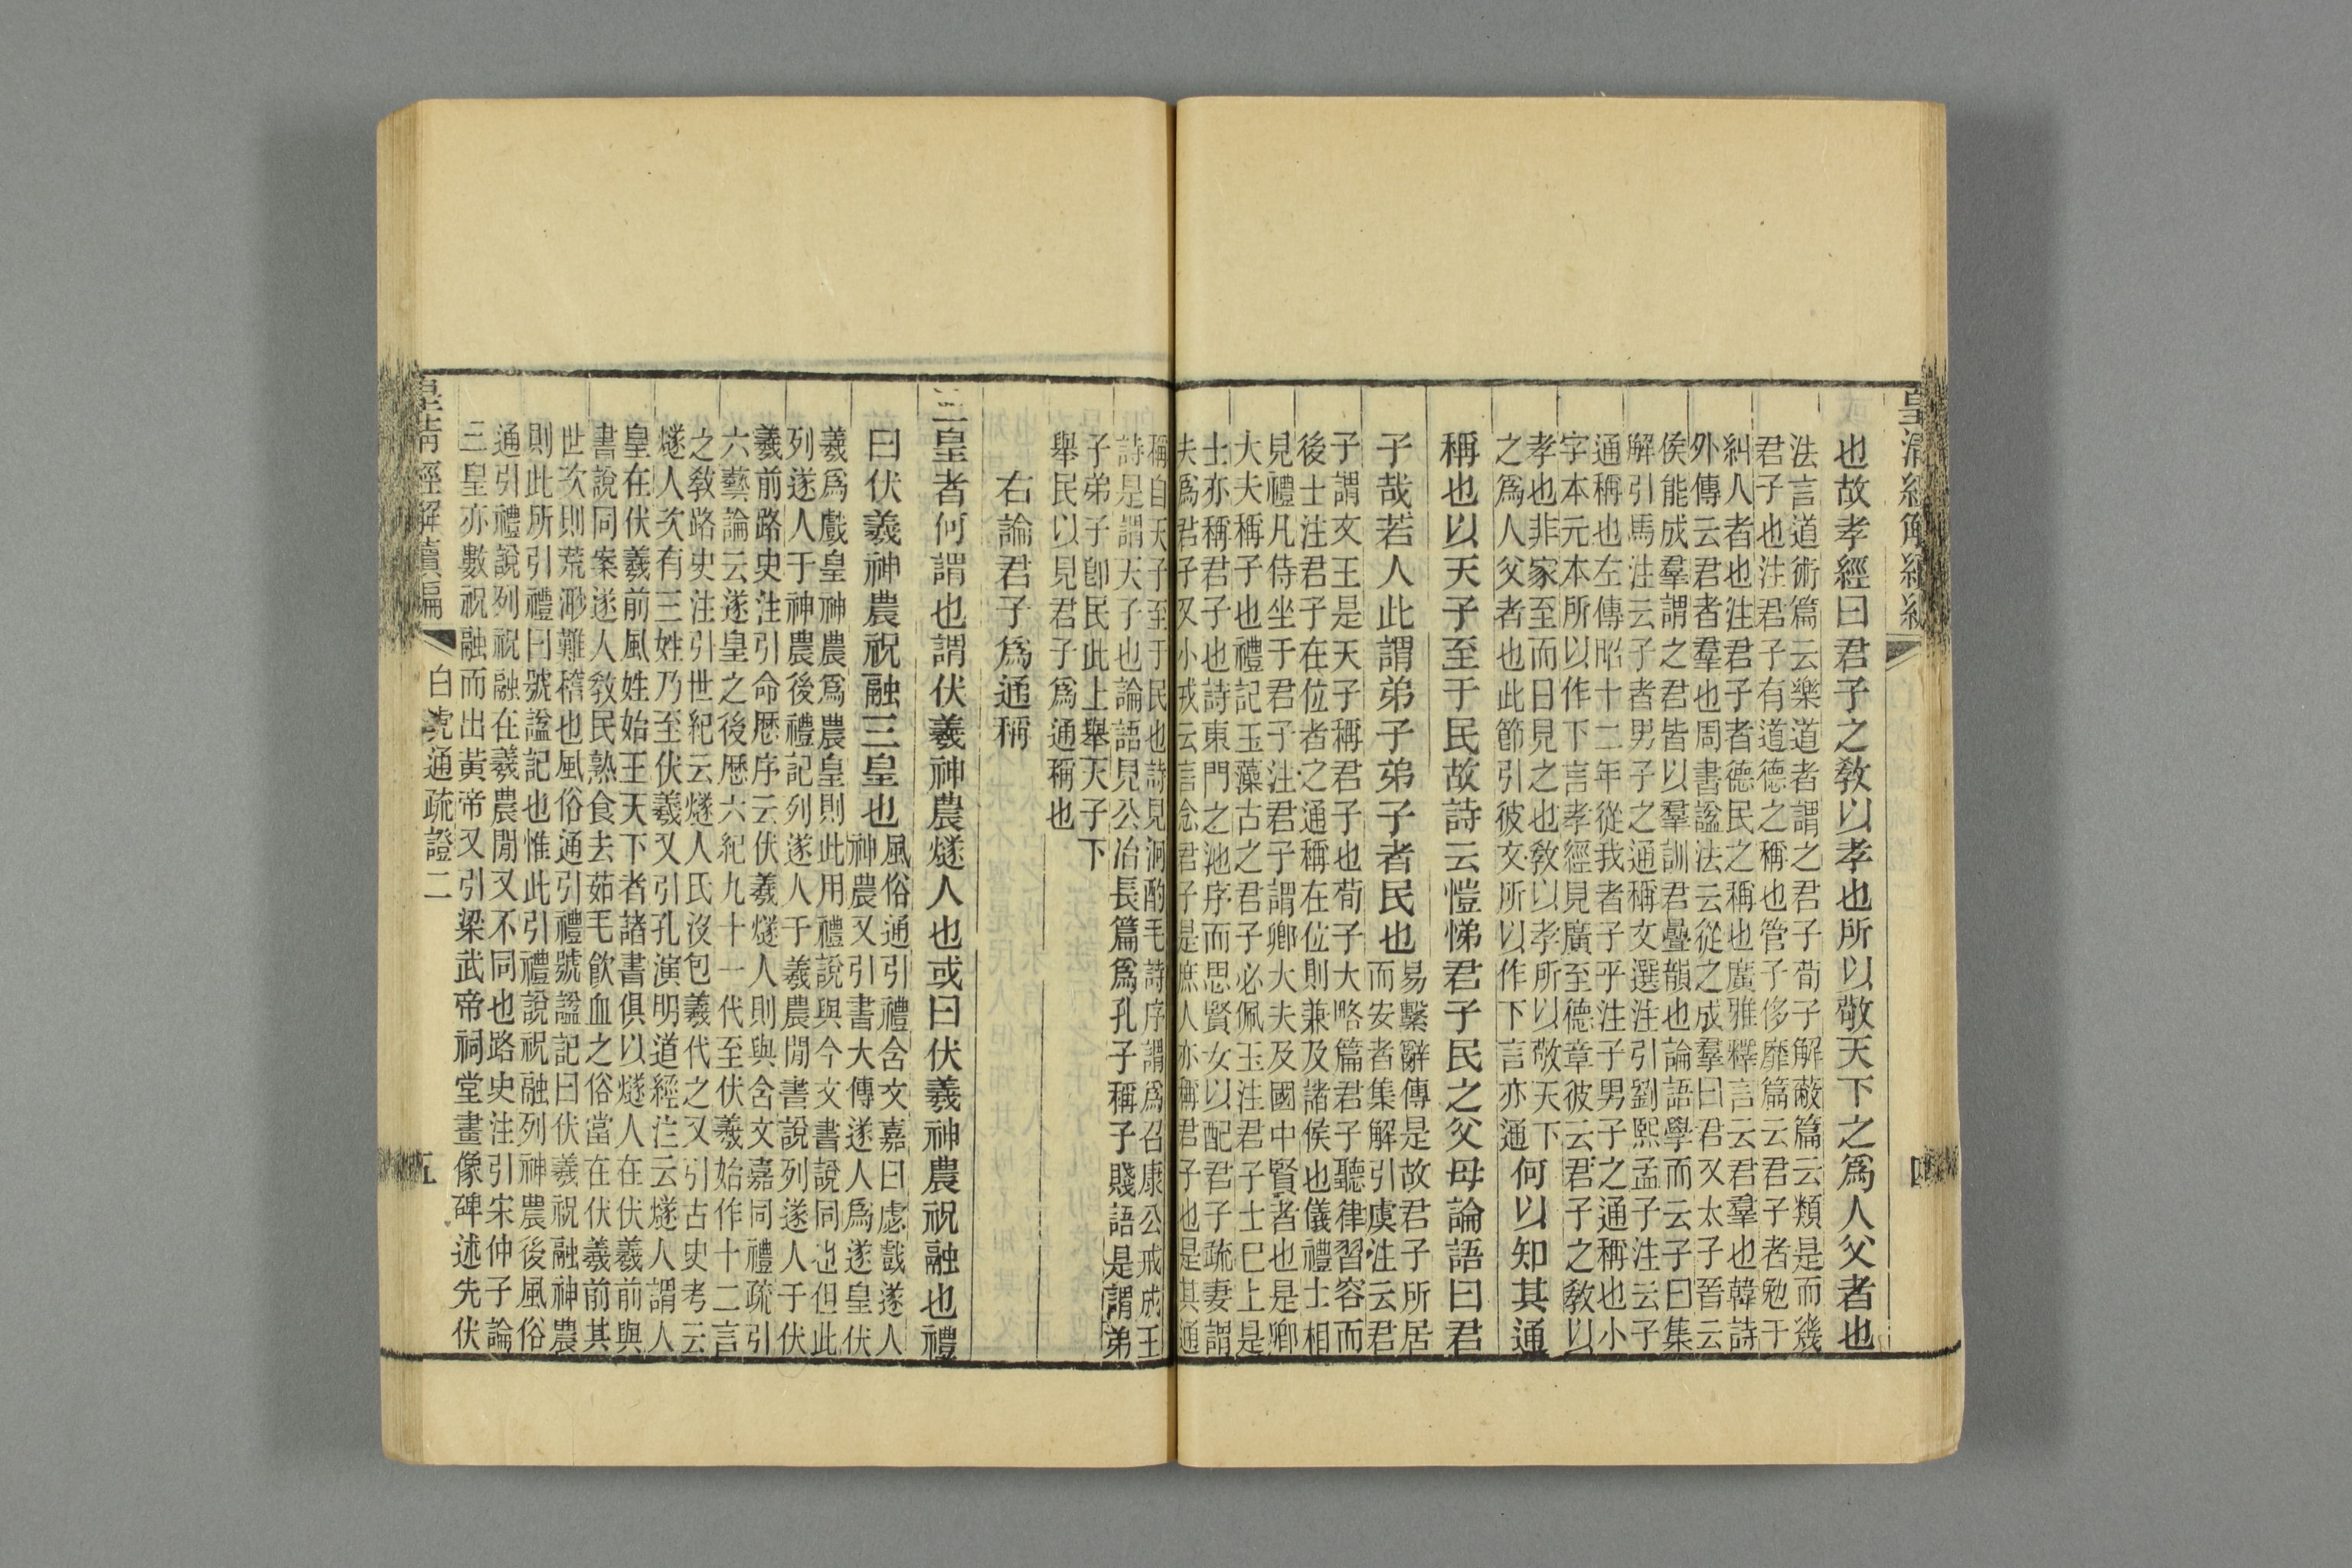 皇清經解續編
四
也故孝經曰君子之敎以孝也所以敬天下之爲人父者也
法言道術篇云樂道者謂之君子荀子解蔽篇云類是而幾
君子也注君子有道德之稱也管子侈靡篇云君子者勉于
糾人者也注君子者德民之稱也廣雅釋言云君羣也韓詩
外傳云君者羣也周書諡法云從之成羣曰君又太子晉云
侯能成羣謂之君皆以羣訓君疊韻也論語學而云子曰集
解引馬注云子者男子之通稱文選注引劉熙孟子注云子
通稱也左傳昭十二年從我者子乎注子男子之通稱也小
字本元本所以作下言孝經見廣至德章彼云君子之敎以
孝也非家至而日見之也敎以孝所以敬天下
之爲人父者也此節引彼文所以作下言亦通
何以知其通
稱也以天子至于民故詩云愷悌君子民之父母論語曰君
子哉若人此謂弟子弟子者民也
易繫辭傳是故君子所居
而安者集解引虞注云君
子謂文王是天子稱君子也荀子大略篇君子聽律習容而
後士注君子在位者之通稱在位則兼及諸侯也儀禮士相
見禮凡侍坐于君子注君子謂卿大夫及國中賢者也是卿
大夫稱子也禮記玉藻古之君子必佩玉注君子士已上是
士亦稱君子也詩東門之池序而思賢女以配君子疏妻謂
夫爲君子又小戎云言念君子是庶人亦稱君子也是其通
稱自天子至于民也詩見泂酌毛詩序謂爲召康公戒成王
詩是謂天子也論語見公冶長篇爲孔子稱子賤語是謂弟
子弟子卽民此上舉天子下
舉民以見君子爲通稱也
右論君子爲通稱
三皇者何謂也謂伏羲神農燧人也或曰伏羲神農祝融也禮
曰伏羲神農祝融三皇也
風俗通引禮含文嘉曰虙戲遂人
神農又引書大傳遂人爲遂皇伏
羲爲戲皇神農爲農皇則此用禮說與今文書說同也但此
列遂人于神農後禮記列遂人于羲農閒書說列遂人于伏
羲前路史注引命歷序云伏羲燧人則與含文嘉同禮疏引
六藝論云遂皇之後歷六紀九十一代至伏羲始作十二言
之敎路史注引世紀云燧人氏沒包羲代之又引古史考云
燧人次有三姓乃至伏羲又引孔演明道經注云燧人謂人
皇在伏羲前風姓始王天下者諸書俱以燧人在伏羲前與
書說同案遂人敎民熟食去茹毛飮血之俗當在伏羲前其
世次則荒渺難稽也風俗通引禮號諡記曰伏羲祝融神農
則此所引禮曰號諡記也惟此引禮說祝融列神農後風俗
通引禮說列祝融在羲農閒又不同也路史注引宋仲子論
三皇亦數祝融而出黃帝又引梁武帝祠堂畫像碑述先伏
皇淸經解續編
白虎通疏證二
五